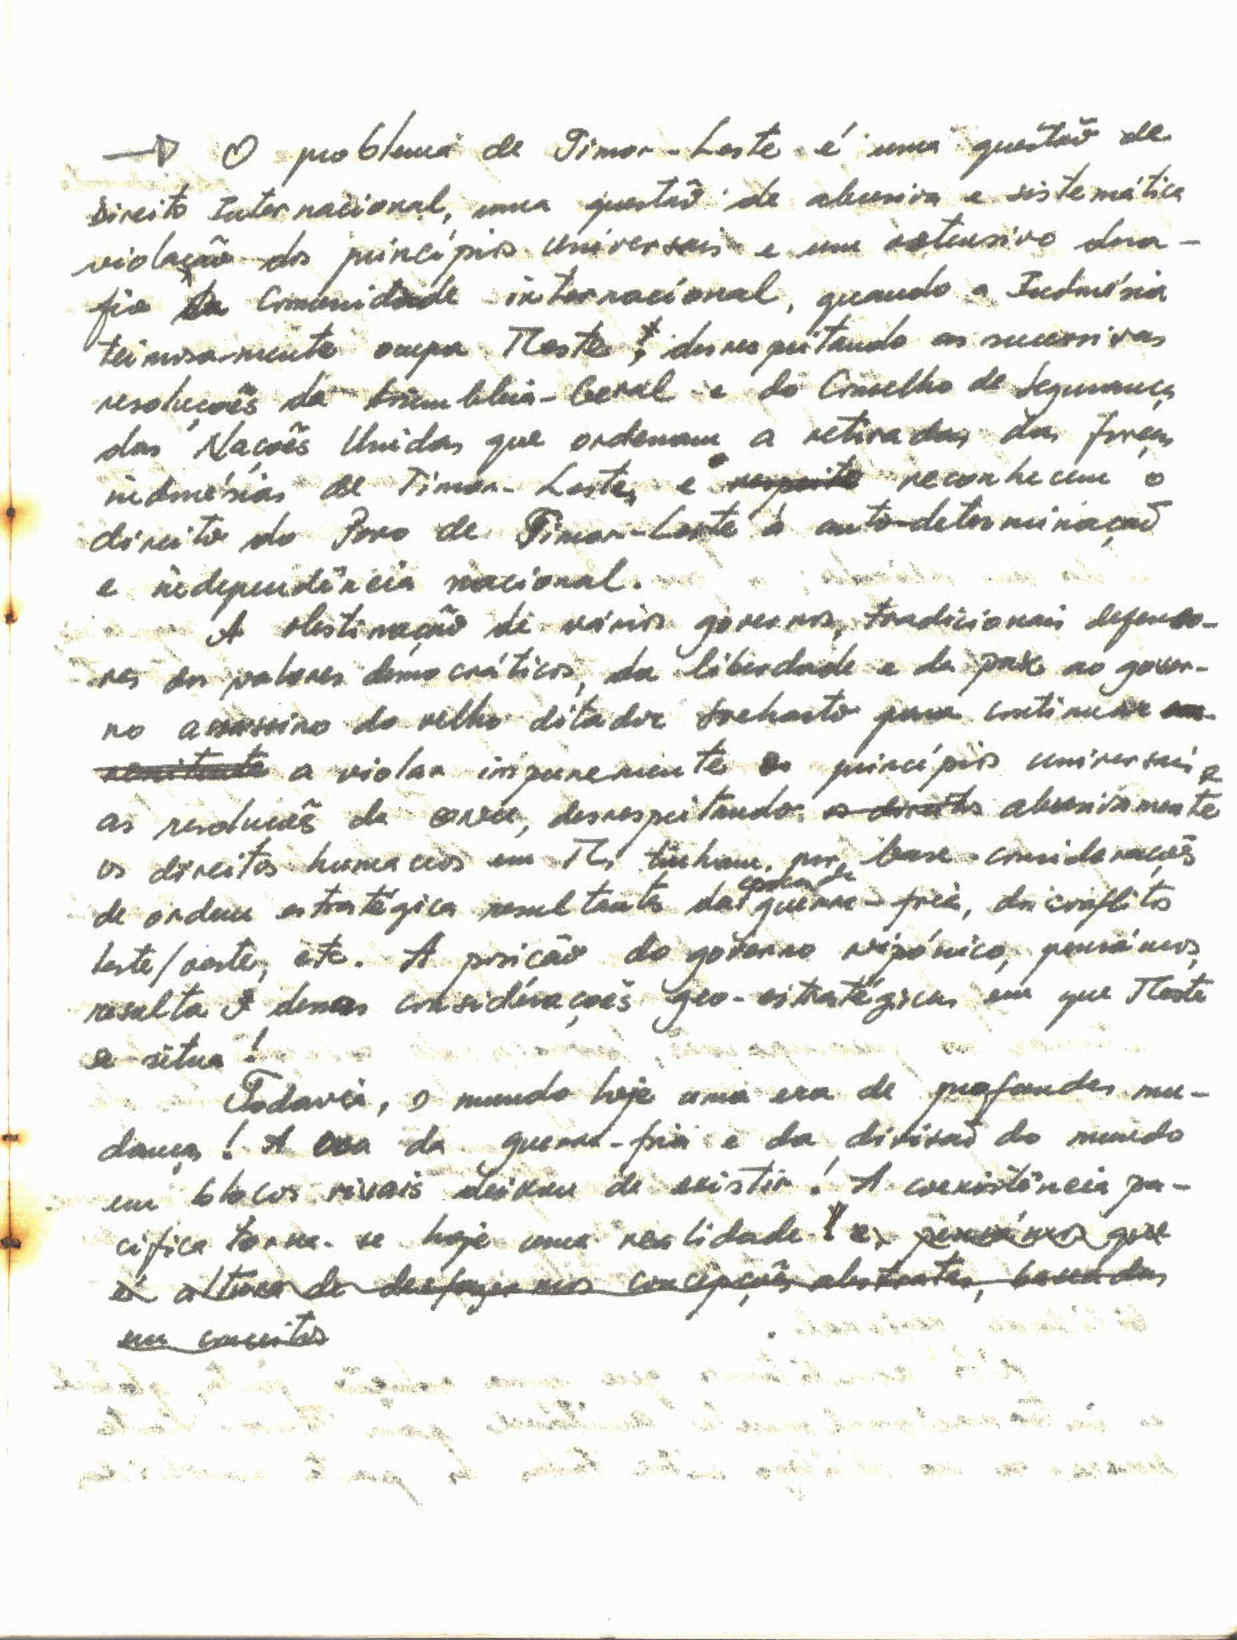 → O problema de Timor-Leste é uma questão de
Direito Internacional, uma questão de abusiva e sistemática
violação dos princípios universais e um ostensivo desa-
fio à Comunidade internacional, quando a Indonésia
teimosamente ocupa TLeste, desrespeitando as sucessivas
resoluções da Assembleia-Geral e do Conselho de Segurança
das Nações Unidas que ordenam a retirada das forças
indonésias de Timor-Leste, e respeito reconhecem o
direito do Povo de Timor-Leste à auto-determinação
e independência nacional.
A obstinação de vários governos, tradicionais defenso-
res dos valores democráticos, da liberdade e da paz ao gover-
no assassino do velho ditador Soeharto para continuar
a violar impunemente os princípios universais e
as resoluções da ONU, desrespeitando os direitos abusivamente
os direitos humanos em TL, tinham, por, base considerações
de ordem estratégica resultantes da guerra-fria, dos conflitos
leste/oeste, etc. A posição do governo nipónico, pensámos,
resulta dessas considerações geo-estratégicas em que TLeste
se situa!
Todavia, o mundo hoje uma era de profundas mu-
danças! A era da guerra-fria e da divisão do mundo
em blocos rivais deixou de existir! A coexistência pa-
cífica torna-se hoje uma realidade! e, pensámos que
é altura de desfazermos concepções abstratas, baseadas
em conceitos